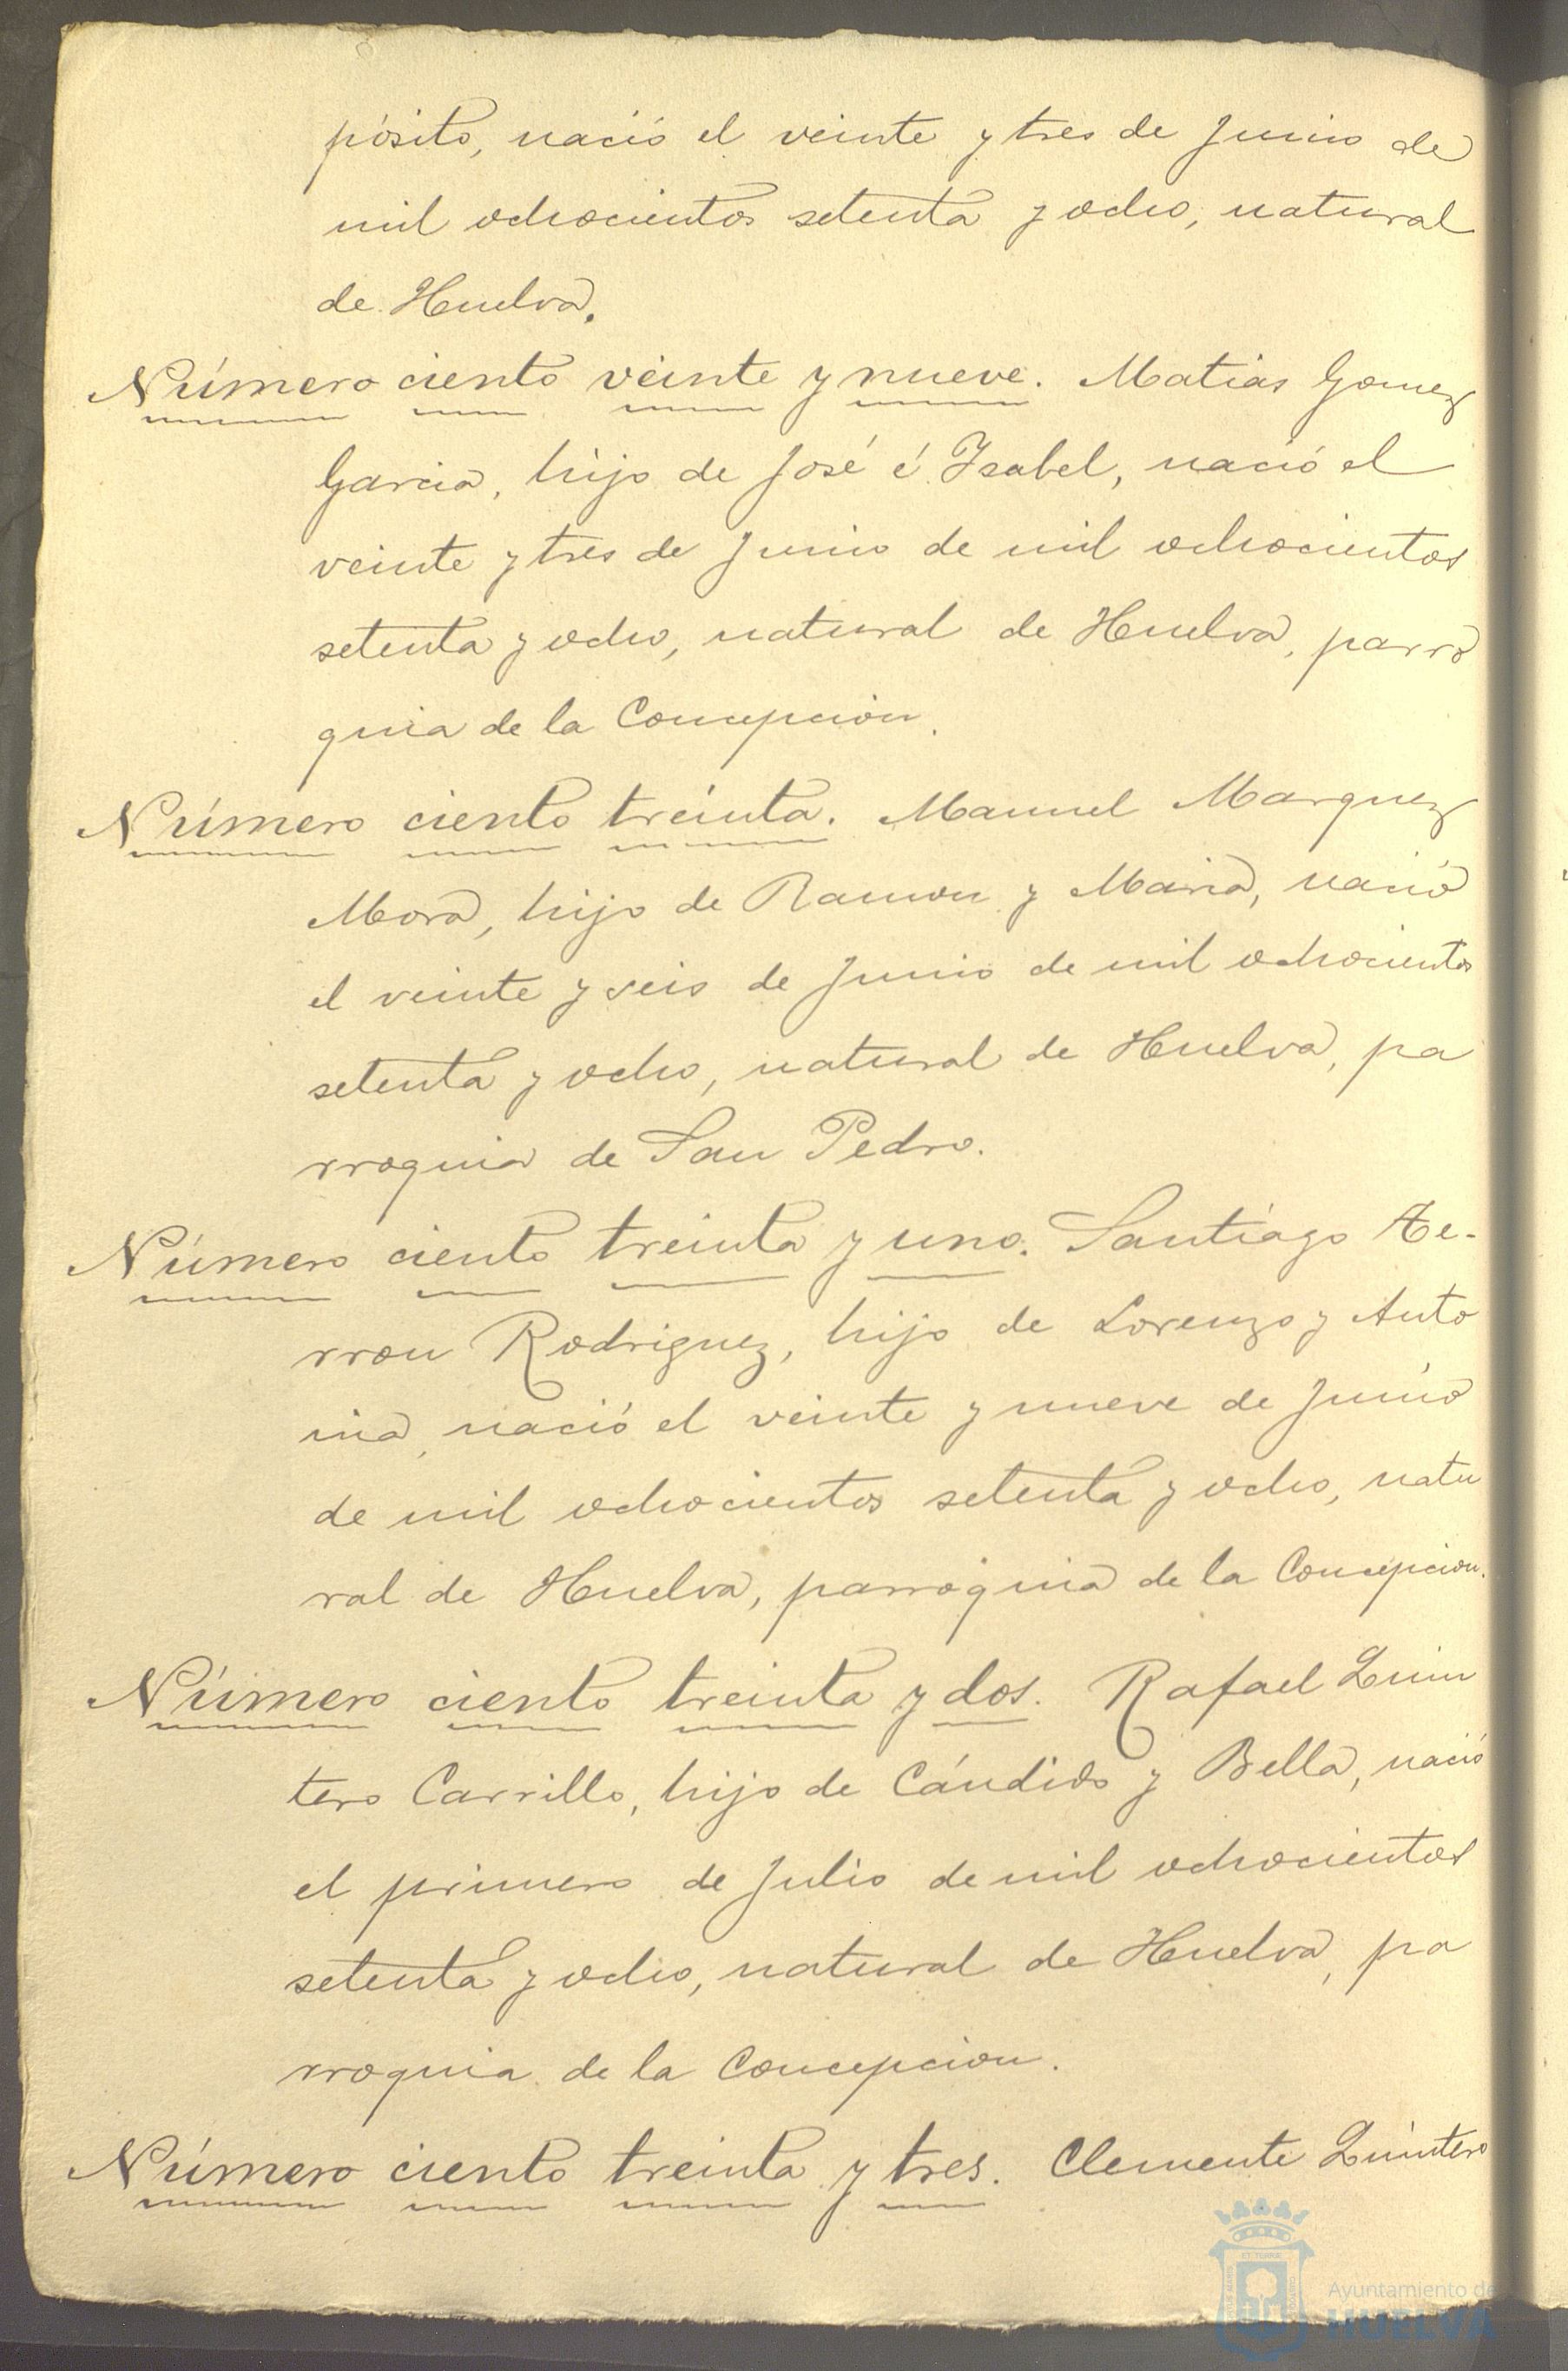 pósito, nació el veinte y tres de Junio de
mil ochocientos setenta y ocho, natural
de Huelva.
Número ciento veinte y nueve. Matias Gomez
Garcia, hijo de José é Isabel, nació el
veinte y tres de Junio de mil ochocientos
setenta y ocho, natural de Huelva, parro
quia de la Concepcion.
Número ciento treinta. Manuel Marquez
Mora, hijo de Ramon y Maria, nació
el veinte y seis de Junio de mil ochocientos
setenta y ocho, natural de Huelva, pa
rroquia de San Pedro.
Número ciento treinta y uno. Santiago
rron Rodriguez, hijo de Lorenzo y Anto
nia, nació el veinte y nueve de Junio
de mil ochocientos setenta y ocho, natu
ral de Huelva, parroquia de la Concepcion.
Número ciento treinta y dos. Rafael Quin
tero Carrillo, hijo de Cándido y Bella, nació
el primero de Julio de mil ochocientos
setenta y ocho, natural de Huelva, pa
rroquia de la Concepcion.
Número ciento treinta y tres. Clemente Quintero
Ayuntamiento de
HUELVA